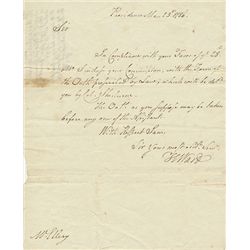 Providence Mar. 23d. 1786.
Sir
In Compliance with your Favor of ye 20
I now Inclose your Commission, with the Form of
the Oath prescribed by Law; which will be del.
you by Col. Sherburne.
The Oath as you suppose may be taken
before any one of the Assistants.
With Respect I am
Sir Your most obdt. Servt.
H Ward
Mr. Ellery